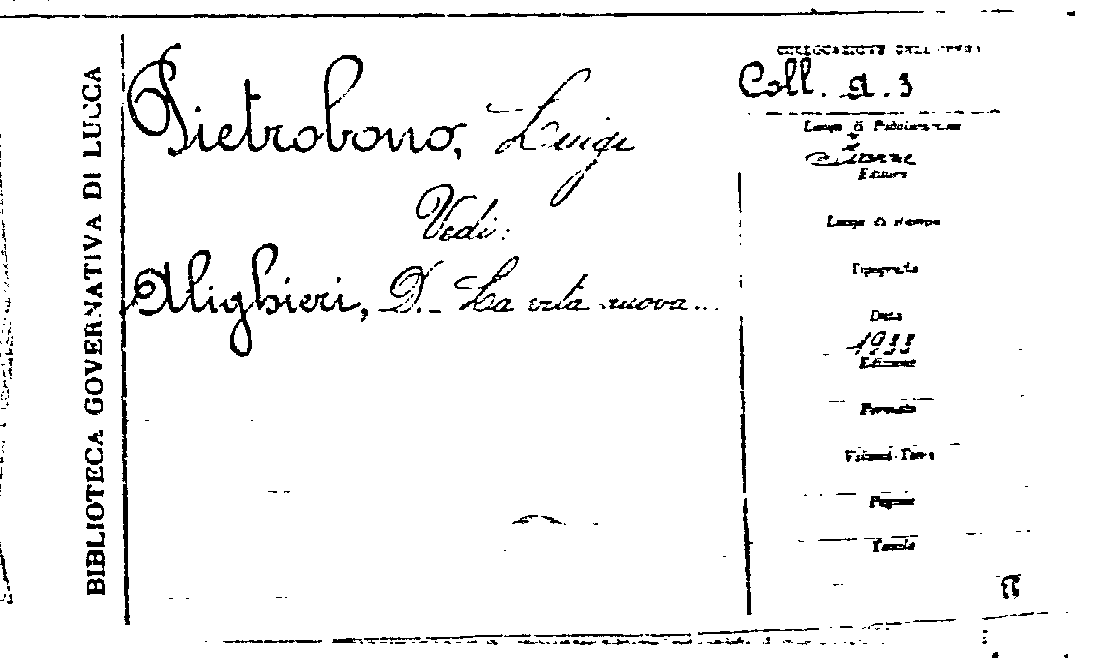 BIBLIOTECA GOVERNATIVA DI LUCCA
Pietrobono, Luigi
Vedi:
Alighieri, D. - La vita nuova...
COLLOCAZIONE DELL'OPERA
Coll. A. 3
Luogo di Pubblicazione
Firenze
Editore
Luogo di stampa
Tipografia
Data
1933
Edizione
Formato
Volumi-Tomi
Pagine
Tavole